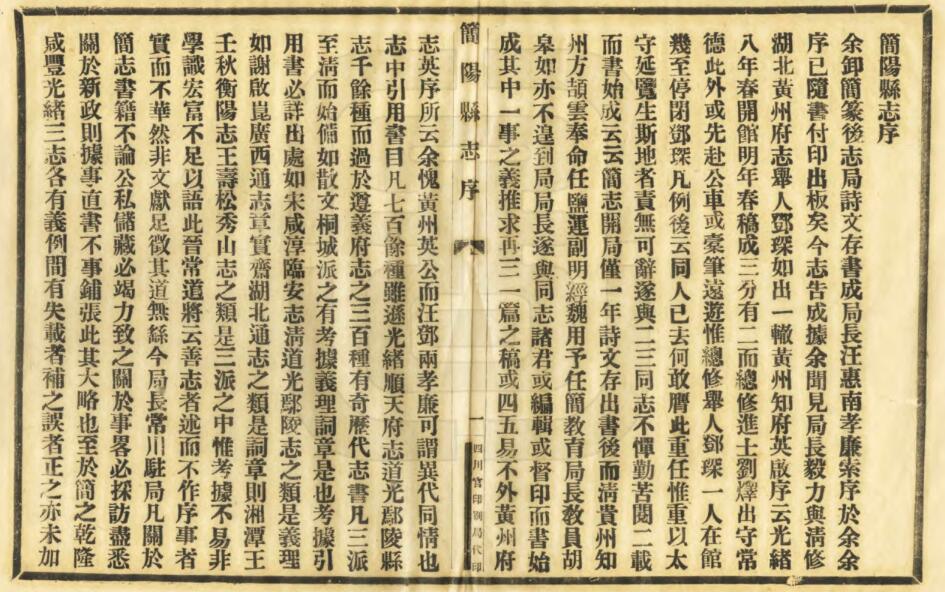 簡陽縣志序
余卸簡篆後志局詩文存書成局長汪惠南孝廉索序於余余
序已隨書付印出板矣今志告成據余聞見局長毅力與清修
湖北黃州府志舉人鄧琛如出一轍黃州知府英啟序云光緒
八年春開館明年春稿成三分有二而總修進士劉燡出守常
德此外或先赴公車或橐筆遠遊惟總修舉人鄧琛一人在館
幾至停閉鄧琛凡例後云同人已去何敢膺此重任惟重以太
守延覽生斯地者責無可辭遂與二三同志不憚勤苦閱二載
而書始成云云簡志開局僅一年詩文存出書後而清貴州知
州方頡雲奉命任鹽運副明經魏用予任簡教育局長教員胡
皋如亦不遑到局局長遂與同志諸君或編輯或督印而書始
成其中一事之義推求再三一篇之稿或四五易不外黃州府
簡陽縣志序
一
四川官印刷局代印
志英序所云余愧黃州英公而汪鄧兩孝廉可謂異代同情也
志中引用書目凡七百餘種雖遜光緒順天府志道光鄢陵縣
志千餘種而過於遵義府志之三百種有奇歷代志書凡三派
至清而始備如散文桐城派之有考據義理詞章是也考據引
用書必詳出處如宋咸淳臨安志清道光鄢陵志之類是義理
如謝啟崑廣西通志章實齋湖北通志之類是詞章則湘潭王
壬秋衡陽志王壽松秀山志之類是三派之中惟考據不易非
學識宏富不足以語此晉常道將云善志者述而不作序事者
實而不華然非文獻足徵其道無繇今局長常川駐局凡關於
簡志書籍不論公私儲藏必竭力致之關於事畧必採訪盡悉
關於新政則據事直書不事鋪張此其大略也至於簡之乾隆
咸豐光緒三志各有義例間有失載者補之誤者正之亦未加